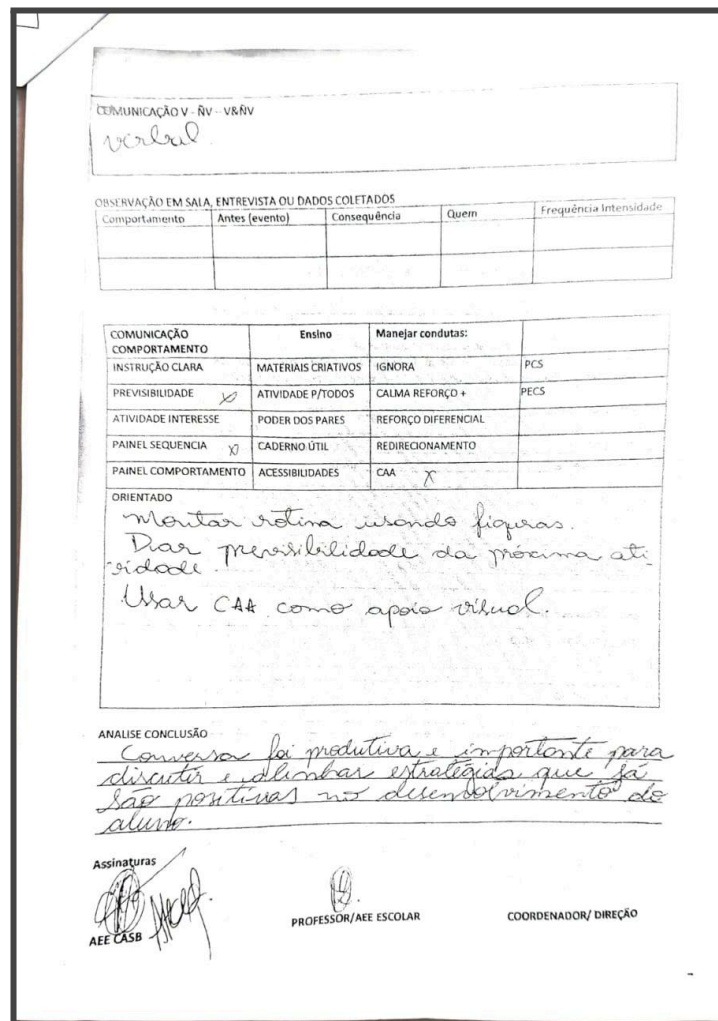 COMUNICAÇÃO V - ÑV - V&ÑV
verbal.
OBSERVAÇÃO EM SALA, ENTREVISTA OU DADOS COLETADOS
Comportamento Antes (evento) Consequência Quem Frequência Intensidade
COMUNICAÇÃO COMPORTAMENTO Ensino Manejar condutas:
INSTRUÇÃO CLARA MATERIAIS CRIATIVOS IGNORA PCS
PREVISIBILIDADE X ATIVIDADE P/TODOS CALMA REFORÇO + PECS
ATIVIDADE INTERESSE PODER DOS PARES REFORÇO DIFERENCIAL
PAINEL SEQUENCIA X CADERNO ÚTIL REDIRECIONAMENTO
PAINEL COMPORTAMENTO ACESSIBILIDADES CAA X
ORIENTADO
Montar rotina usando figuras.
Dar previsibilidade da próxima ati-
vidade.
Usar CAA como apoio visual.
ANALISE CONCLUSÃO
Conversa foi produtiva e importante para
discutir e alinhar estratégias que já
são positivas no desenvolvimento do
aluno.
Assinaturas
AEE CASB PROFESSOR/AEE ESCOLAR COORDENADOR/ DIREÇÃO